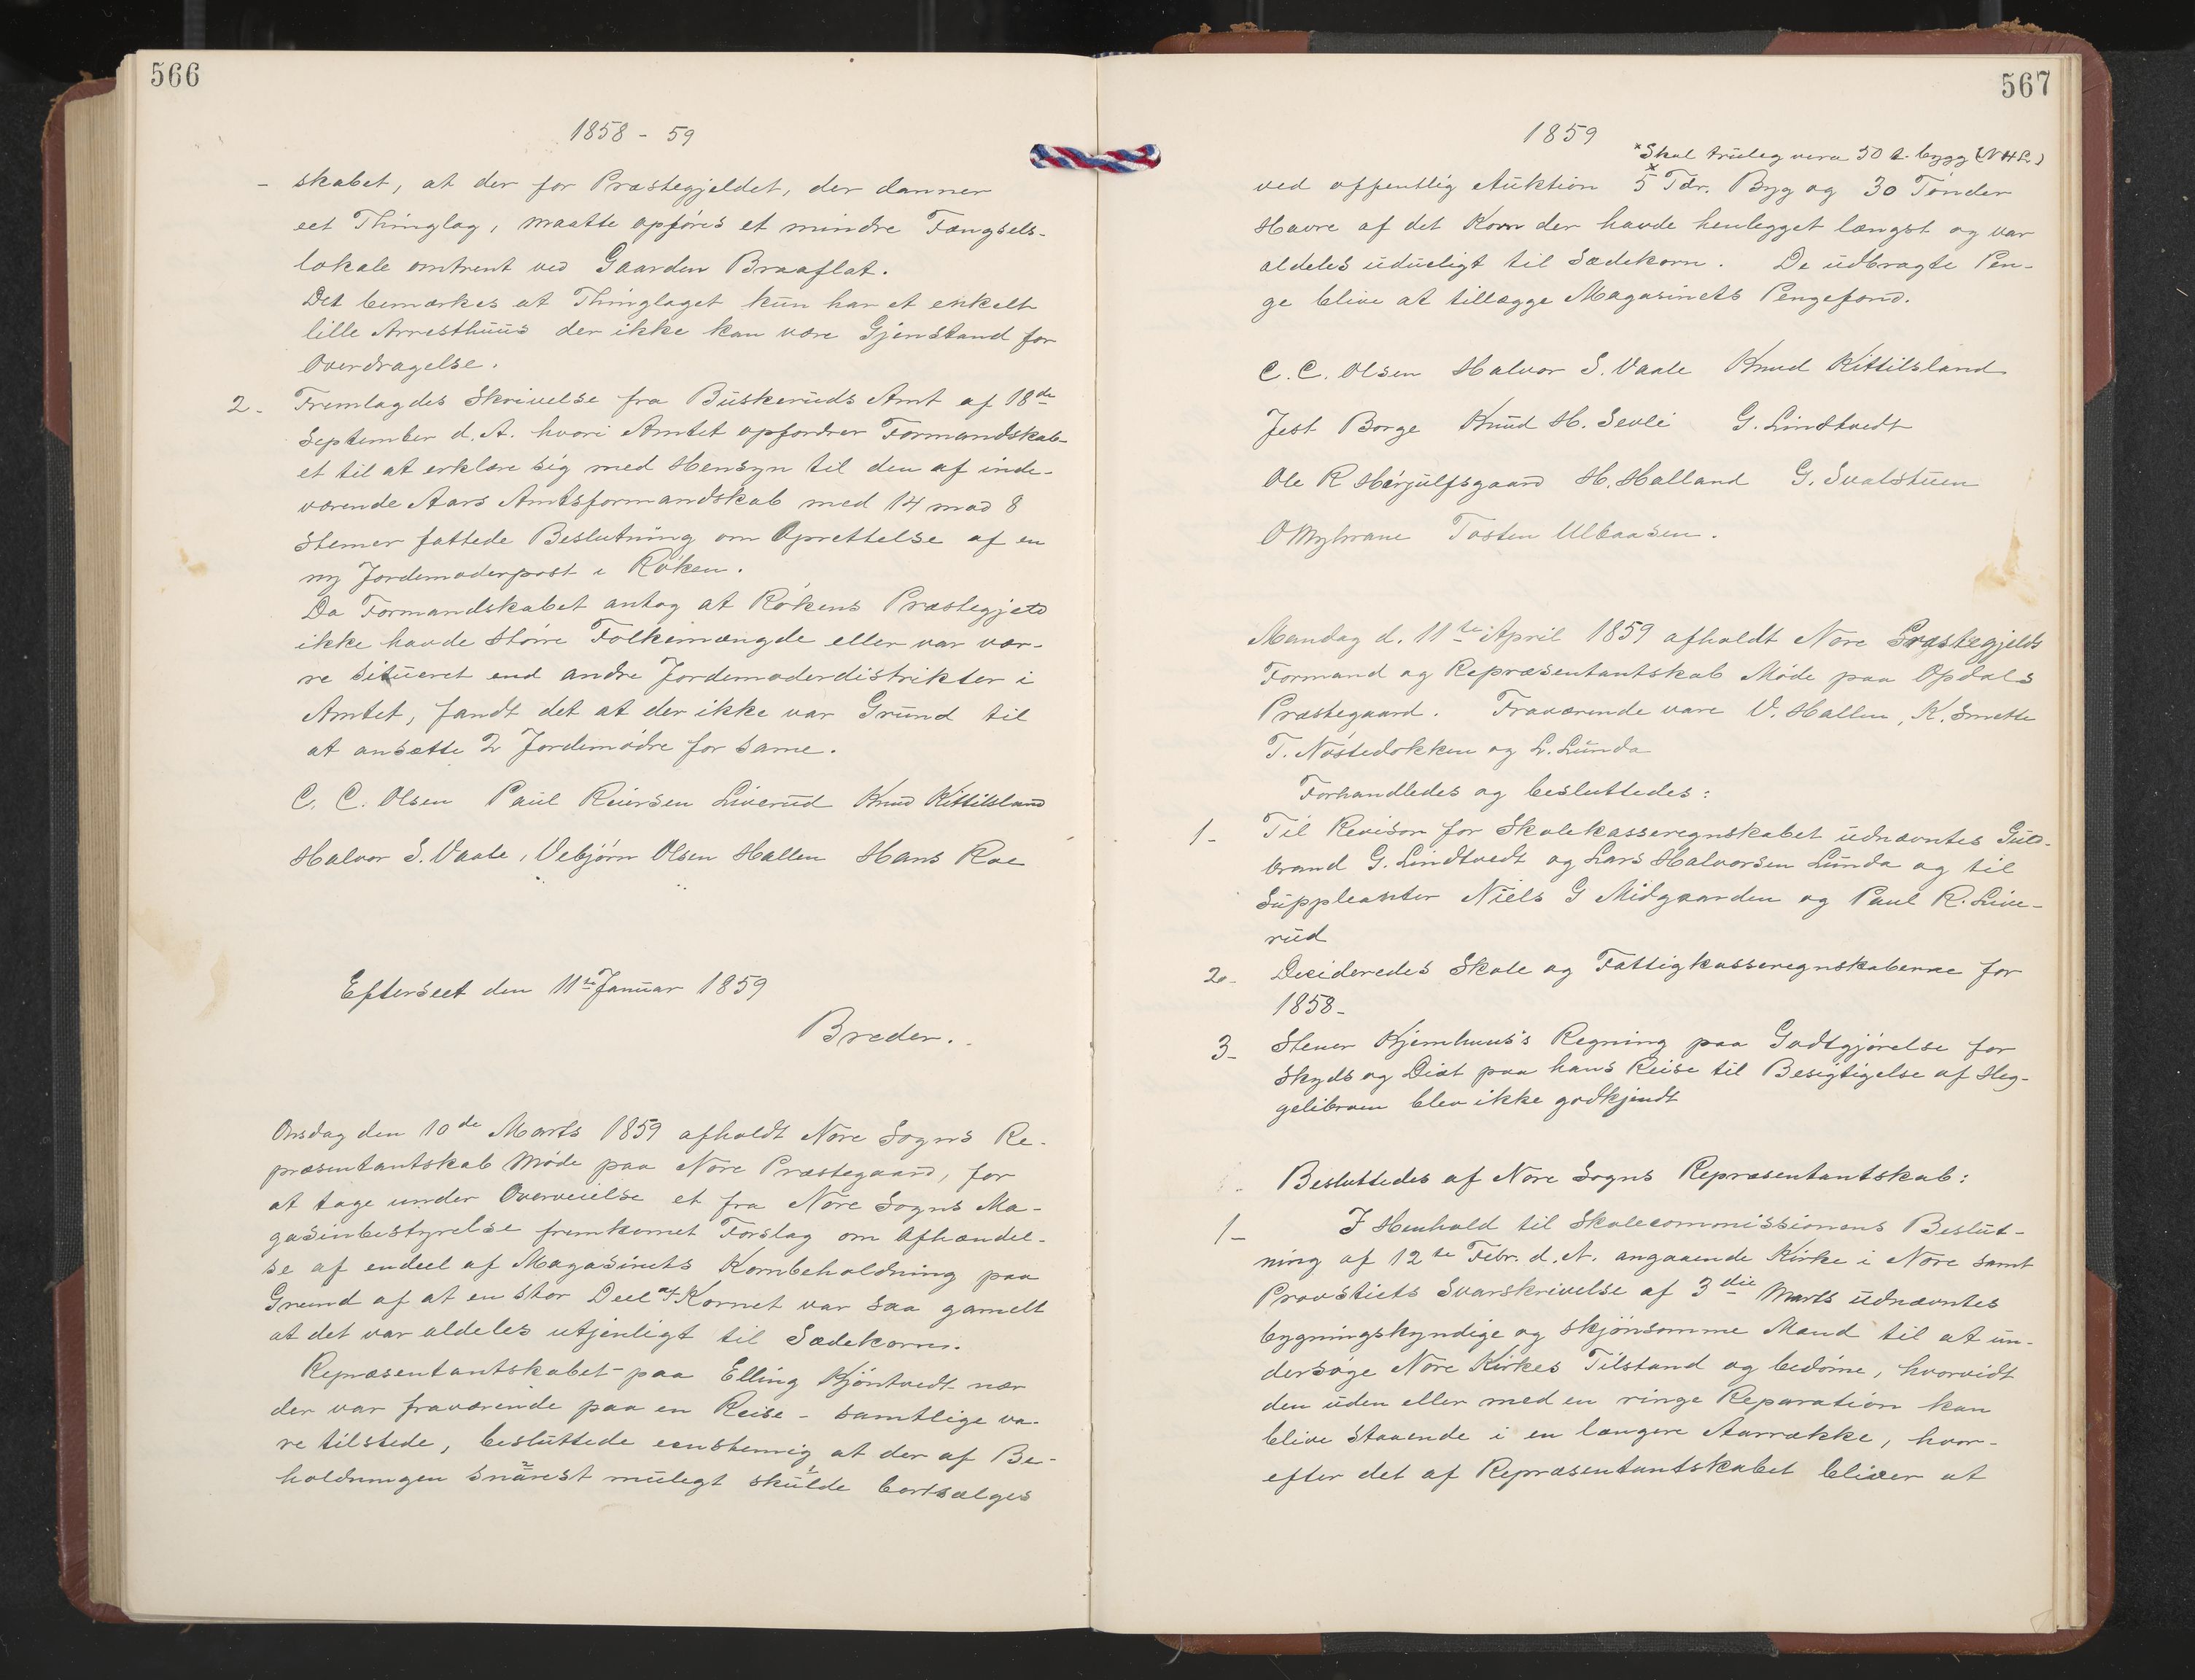 566
1858 - 59
- skabet, at der for Præstegjeldet, der danner
eet Thinglag, maatte opføres et mindre Fængsels-
lokale omtrent ved Gaarden Braaflat.
Det bemærkes at Thinglaget kun har et enkelt
lille Arresthuus der ikke kan være Gjenstand for
Overdragelse.
2. Fremlagdes Skrivelse fra Buskeruds Amt af 18de
September d. A. hvori Amtet opfordrer Formandskab-
et til at erklære sig med Hensyn til den af inde-
værende Aars Amtsformandskab med 14 mod 8
Stemer fattede Beslutning om Oprettelse af en
ny Jordemoderpost i Røken.
Da Formandskabet antog at Røkens Præstegjeld
ikke havde større Folkemængde eller var vær-
re situeret end andre Jordemoderdistrikter i
Amtet, fandt det at der ikke var Grund til
at ansette 2 Jordemødre for same.
C. C. Olsen Paul Reiersen Liverud Knud Kittilsland
Halvor S. Vaale, Vebjørn Olsen Hallen Hans Roe
Efterseet den 11te Januar 1859
Breder.
Onsdag den 10de Marts 1859 afholdt Nore Sogns Re-
præsentantskab Møde paa Nore Præstegaard, for
at tage under Overveielse et fra Nore Sogns Ma-
gasinbestyrelse fremkomet Forslag om Afhændel-
se af endeel af Magasinets Kornbeholdning paa
Grund af at en stor Deel af Kornet var saa gamelt
at det var aldeles utjenligt til Sædekorn.
Repræsentantskabet - paa Elling Kjøntvedt nær
der var fraværende paa en Reise - samtlige va-
re tilstede, besluttede eenstemig at der af Be-
holdningen snarest mulegt skulde bortsælges
567
1859
*Skal truleg vera 50 t. bygg (NHL)
ved offentlig Auktion 5 x Tdr. Byg og 30 Tønder
Havre af det Korn der havde henlegget længst og var
aldeles udueligt til Sædekorn. De udbragte Pen-
ge blive at tillægge Magasinets Pengefond.
C. C. Olsen Halvor S. Vaale Knud Kittilsland
Jest Borge Knud H. Sevli G. Lindtvedt
Ole R Herjulfsgaard H. Halland G. Svalstuen
O Myhrane Tosten Ulbaasen.
Mandag d. 11te April 1859 afholdt Nore Præstegjelds
Formand og Repræsentantskab Møde paa Opdals
Præstegaard. Fraværende vare V. Hallen, K. Smette
T. Nøstedokken og L. Lunda
Forhandledes og besluttedes:
1- Til Revisor for Skolekasseregnskabet udnævntes Guld-
brand G. Lindtvedt og Lars Halvorsen Lunda og til
Suppleanter Niels G Midgaarden og Paul R. Live-
rud
2- Decideredes Skole og Fattigkasseregnskaberne for
1858-
3- Stener Kjemhuus's Regning paa Godtgjørelse for
Skyds og Diæt paa hans Reise til Besigtigelse af Heg-
gelibroen blev ikke godkjendt
Besluttedes af Nore Sogns Repræsentantskab:
1- I Henhold til Skolecommissionens Beslut-
ning af 12te Febr. d. A. angaaende Kirke i Nore samt
Provstiets Svarskrivelse af 3die Marts udnævntes
bygningskyndige og skjønsomme Mænd til at un-
dersøge Nore Kirkes Tilstand og bedøme, hvorvidt
den uden eller med en ringe Reparation kan
blive staaende i en længere Aarrække, hvor-
efter det af Repræsentantskabet bliver at